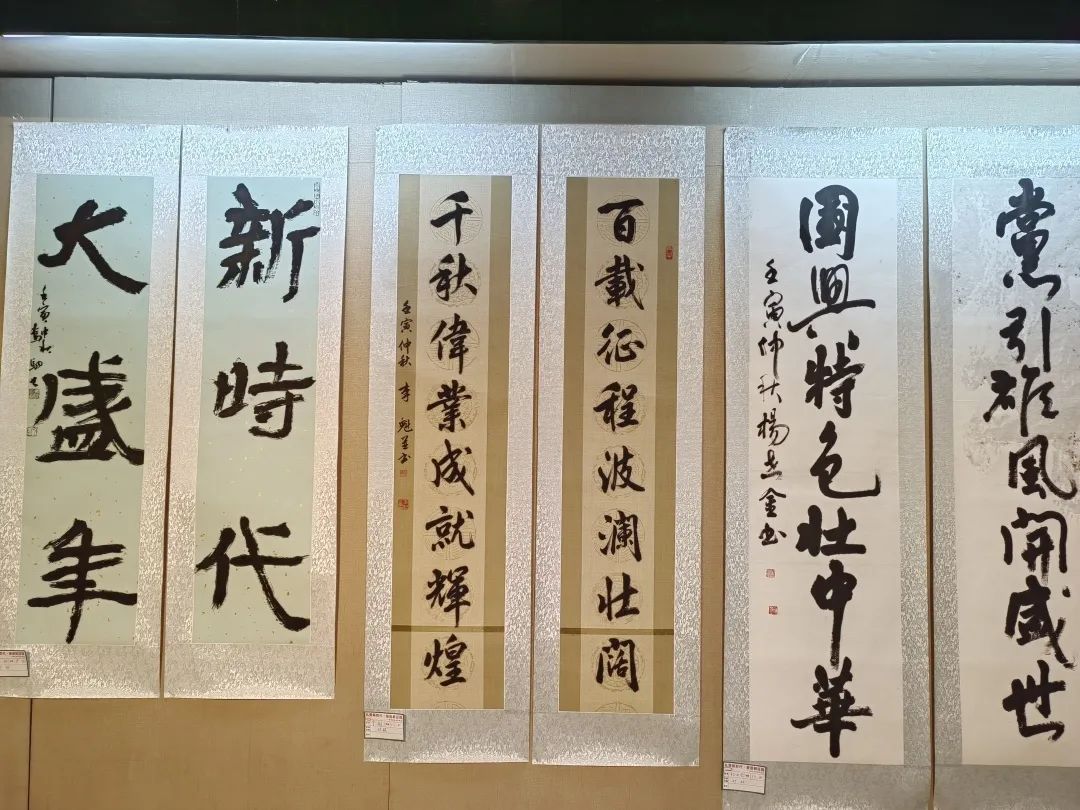 黨引雄風開盛世
國興特色壯中華
壬寅仲秋楊志金书
百載征程波瀾壯闊
千秋偉業成就輝煌
壬寅仲秋李魁书
新時代
大盛年
壬寅仲秋